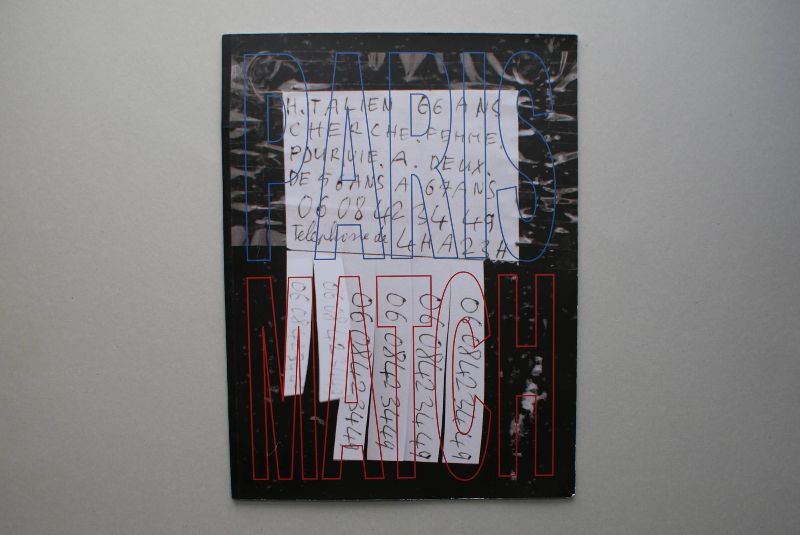 PARIS
H. TALIEN 66 ANS
CHERCHE. FEMME.
POUR VIE. A. DEUX.
DE 56 ANS A 67 ANS
06 08 42 34 49
Telephone de 4H A 22H
MATCH
06 08 42 34 49
06 08 42 34 49
06 08 42 34 49
06 08 42 34 49